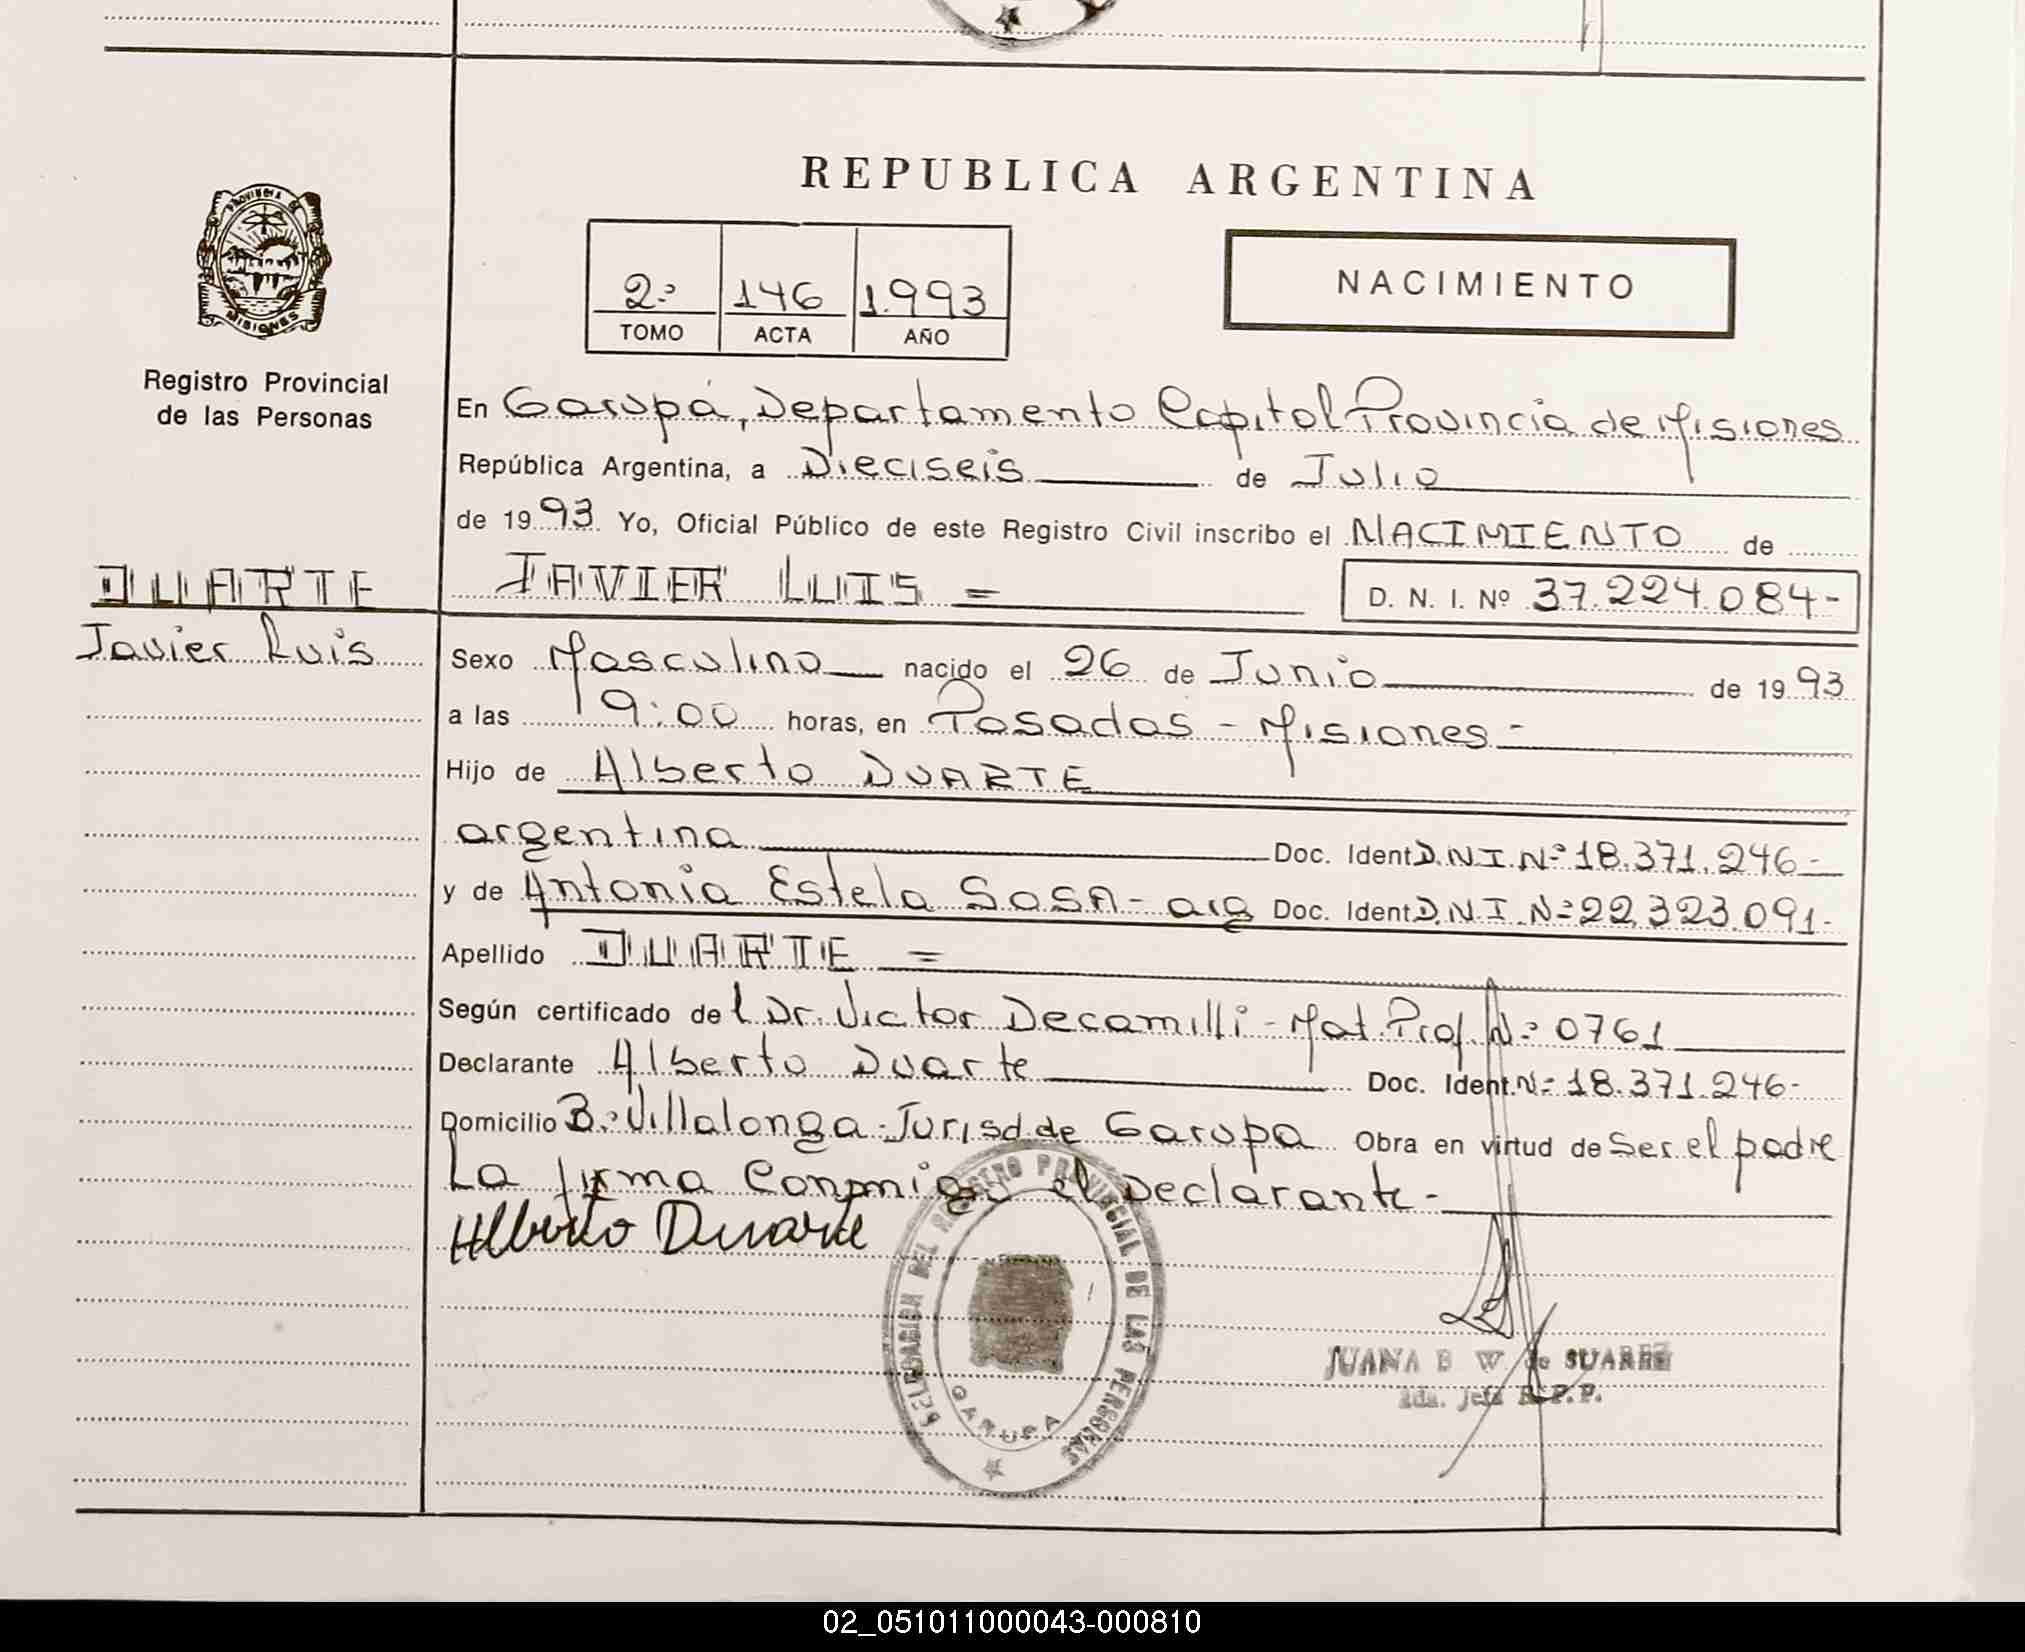 REPUBLICA ARGENTINA
PROVINCIA DE
MISIONES
Registro Provincial
de las Personas
2º 146 1.993
TOMO ACTA AÑO
NACIMIENTO
En Garupá, Departamento Capital Provincia de Misiones
República Argentina, a Dieciseis de Julio
de 1993 Yo, Oficial Público de este Registro Civil inscribo el NACIMIENTO de
DUARTE
Javier Luis
JAVIER LUIS = D. N. I. Nº 37.224.084-
Sexo Masculino nacido el 26 de Junio de 1993
a las 19:00 horas, en Posadas - Misiones -
Hijo de Alberto DUARTE
argentina Doc. Ident D.N.I. Nº 18.371.246-
y de Antonia Estela SOSA - arg Doc. Ident D.N.I. Nº 22.323.091-
Apellido DUARTE =
Según certificado de l Dr. Victor Decamilli - Mat. Prof. Nº 0761
Declarante Alberto Duarte Doc. Ident. Nº 18.371.246-
Domicilio Bº Villalonga - Jurisd. de Garupa Obra en virtud de Ser el padre
La firma Conmigo el Declarante -
Alberto Duarte
DELEGACION DEL REGISTRO PROVINCIAL DE LAS PERSONAS
GARUPA
JUANA B W de SUAREZ
2da. Jefa R.P.P.
02_051011000043-000810